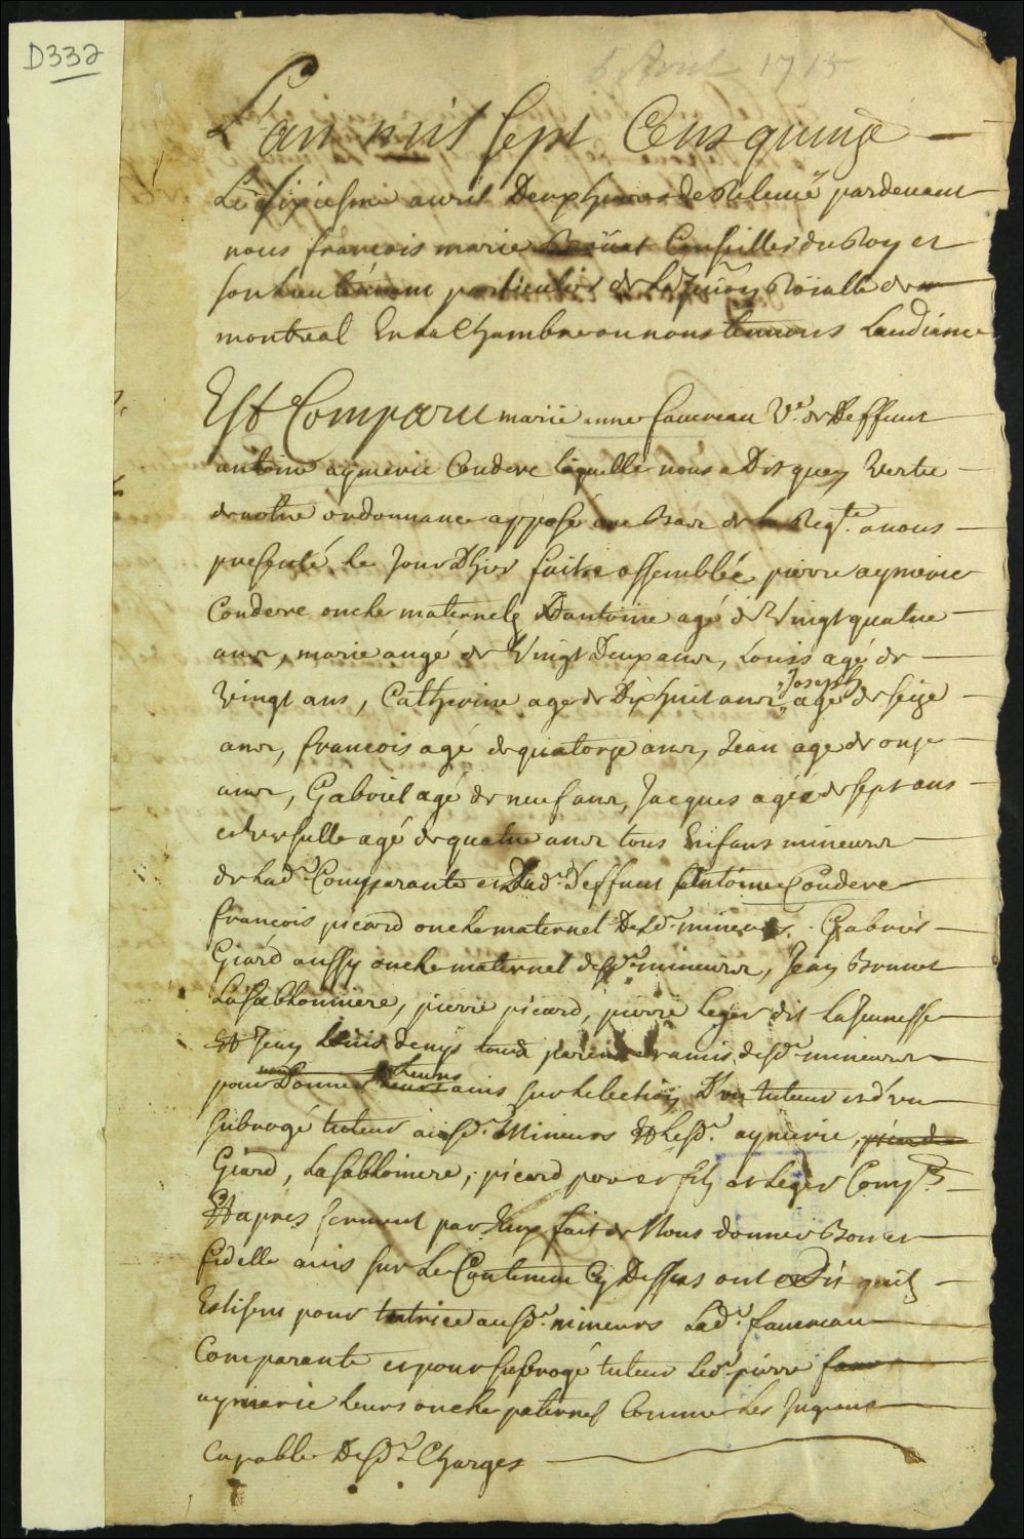 D332
6 Avril 1715
L'an mil sept Cens quinze
Le sixiesme auril Deux heures de Releuée pardeuant
nous francois marie Boüat Conseiller du Roy et
son lieutenant particulier de la Jurōn Roialle de
montreal En la Chambre ou nous tennons Laudiance
Est Comparu marie anne faureau Ve. de Deffunt
antoine aymerie Coudere laquelle nous a Dit quen Vertu
de notre ordonnance apposé au bas de la Reqte. a nous
presenté le Jour Dhier faitte assemblée pierre aymerie
Coudere oncle maternelz Dantoine agé de Vingt quatre
ans, marie angé de Vingt Deux ans, Louis agé de
Vingt ans, Catherine agé de Dix huit ans, Joseph agé de seize
ans, francois agé de quatorze ans, Jean agé de onze
ans, Gabriel agé de neuf ans, Jacques agée de sept ans
agé de quatre ans tous Enfans mineurs
de Lade. Comparante et Dud. Deffunt Antoine Coudere
francois picard oncle maternel Desd. mineurs. Gabriel
Giard aussy oncle maternel desd. mineurs, Jean Brunet
La Sablonniere, pierre picard, pierre Leger dit La Jeunesse
Et Jean Louis denys tous parens et amis desd. mineurs
pour Donner leurs auis sur lelection D'un tuteur et d'un
subrogé tuteur ausd. Mineurs Et lesd. aymerie, picard
Giard, Lasabloniere, picard pere et filz et Leger Comp.
Et apres serment par Eux fait de Nous donner Bon et
fidelle auis sur Le Contenu Cy Dessus ont Dit quilz
Eslisent pour tutrice ausd. mineurs Lade. faureau
Comparante et pour subrogé tuteur led. pierre
aymerie leurs oncle paternel Comme Les Jugeans
Capable Desd. Charges